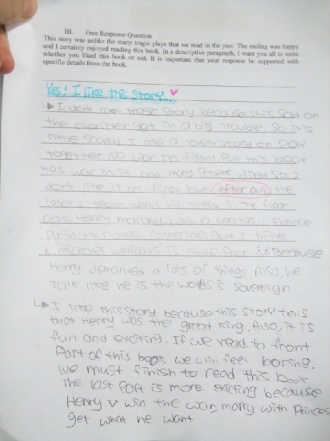 III. Free Response Question
This story was unlike the many tragic plays that we read in the past. The ending was happy
and I certainly enjoyed reading this book. In a descriptive paragraph, I want you all to write
whether you liked this book or not. It is important that your response be supported with
specific details from the book.
Yes! I like this story.
I don't like those story because it is sad or
the character got in a big trouble. So it is
I like a love story or
together No war no fight. But this book
has war in it and many People died. So I
don't like it on first but after all the
Henry married with a beautiful France
Princess Katherine. But I think
is Because
Henry demanded a lots of things Also, he
talk like he is the world's sovereign
I like this story because this story tells
that Henry was the great king. Also, it is
fun and exciting. If we read to front
Part of this book we will feel boring.
We must finish to read this book
The last part is more exciting because
Henry V win the war, marry with Princess
get what he want